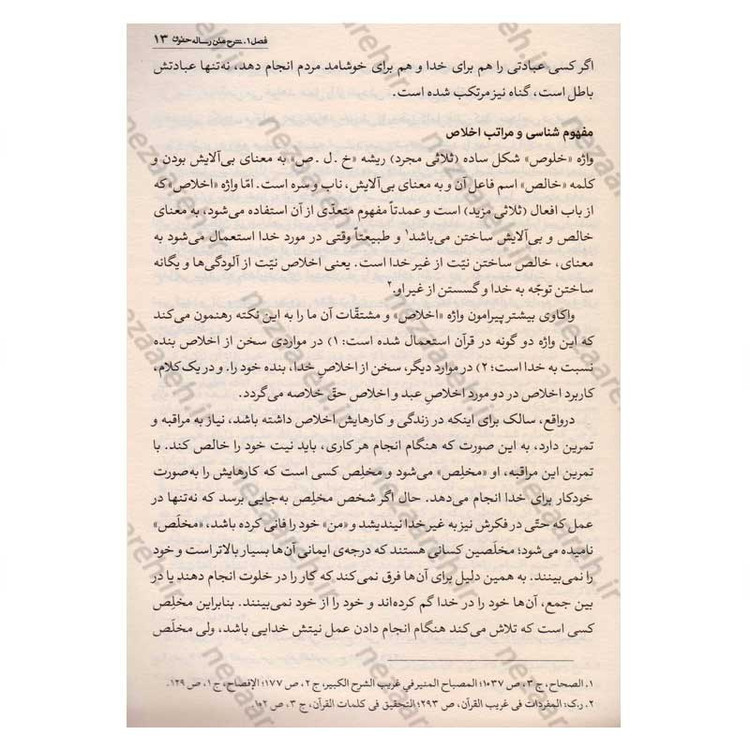 فصل ۱. شرح متن رساله حقوق ۱۳
اگر کسی عبادتی را هم برای خدا و هم برای خوشامد مردم انجام دهد، نه‌تنها عبادتش
باطل است، گناه نیز مرتکب شده است.
مفهوم شناسی و مراتب اخلاص
واژه «خلوص» شکل ساده (ثلاثی مجرد) ریشه «خ . ل . ص» به معنای بی‌آلایش بودن و
کلمه «خالص» اسم فاعل آن و به معنای بی‌آلایش، ناب و سره است. امّا واژه «اخلاص» که
از باب افعال (ثلاثی مزید) است و عمدتاً مفهوم متعدّی از آن استفاده می‌شود، به معنای
خالص و بی‌آلایش ساختن می‌باشد۱ و طبیعتاً وقتی در مورد خدا استعمال می‌شود به
معنای، خالص ساختن نیّت از غیر خدا است. یعنی اخلاص نیّت از آلودگی‌ها و یگانه
ساختن توجّه به خدا و گسستن از غیر او.۲
واکاوی بیشتر پیرامون واژه «اخلاص» و مشتقّات آن ما را به این نکته رهنمون می‌کند
که این واژه دو گونه در قرآن استعمال شده است: ۱) در مواردی سخن از اخلاص بنده
نسبت به خدا است؛ ۲) در موارد دیگر، سخن از اخلاصِ خدا، بنده خود را. و در یک کلام،
کاربرد اخلاص در دو مورد اخلاصِ عبد و اخلاصِ حقّ خلاصه می‌گردد.
درواقع، سالک برای اینکه در زندگی و کارهایش اخلاص داشته باشد، نیاز به مراقبه و
تمرین دارد، به این صورت که هنگام انجام هر کاری، باید نیت خود را خالص کند. با
تمرین این مراقبه، او «مخلِص» می‌شود و مخلِص کسی است که کارهایش را به‌صورت
خودکار برای خدا انجام می‌دهد. حال اگر شخص مخلِص به‌جایی برسد که نه‌تنها در
عمل که حتّی در فکرش نیز به غیر خدا نیندیشد و «من» خود را فانی کرده باشد، «مخلَص»
نامیده می‌شود؛ مخلَصین کسانی هستند که درجه‌ی ایمانی آن‌ها بسیار بالاتر است و خود
را نمی‌بینند. به همین دلیل برای آن‌ها فرق نمی‌کند که کار را در خلوت انجام دهند یا در
بین جمع، آن‌ها خود را در خدا گم کرده‌اند و خود را از خود نمی‌بینند. بنابراین مخلِص
کسی است که تلاش می‌کند هنگام انجام دادن عمل نیتش خدایی باشد، ولی مخلَص
۱. الصحاح، ج ۳، ص ۱۰۳۷؛ المصباح المنیر فی غریب الشرح الکبیر، ج ۲، ص ۱۷۷؛ الإفصاح، ج ۱، ص ۱۲۹.
۲. ر.ک: المفردات فی غریب القرآن، ص ۲۹۳؛ التحقیق فی کلمات القرآن، ج ۳، ص ۱۰۲.
nezaareh.ir